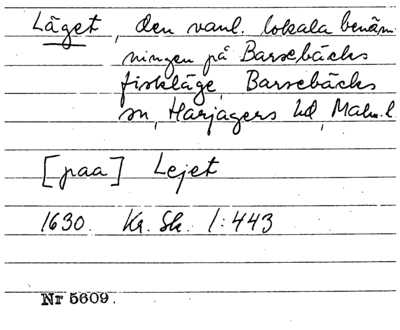 Läget, den vanl. lokala benäm-
ningen på Barsebäcks
fiskläge, Barsebäcks
sn, Harjagers hd, Malm. l.
[paa] Lejet
1630. Kr. Sk. 1:443
Nr 5609.